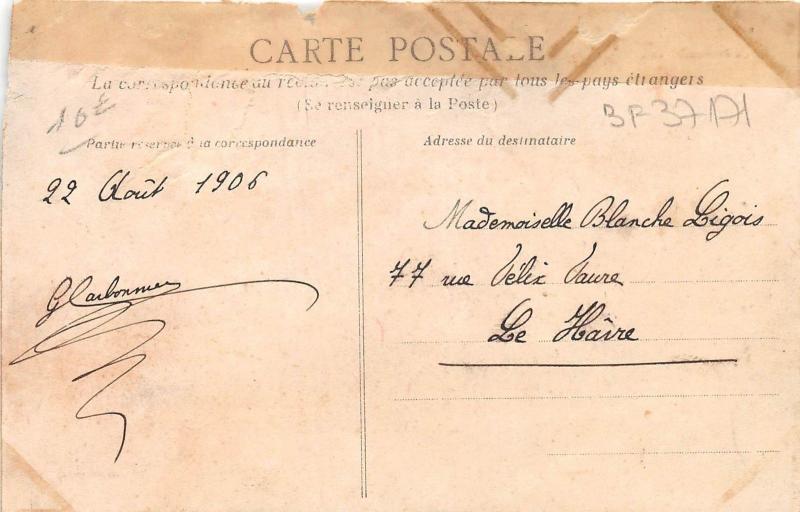 CARTE POSTALE
La correspondance au recto n'est pas acceptée par tous les pays étrangers
(Se renseigner à la Poste)
10€
BF 37171
Partie réservée à la correspondance
22 Août 1906
Adresse du destinataire
Mademoiselle Blanche Ligois
77 rue Félix Faure
Le Hâvre